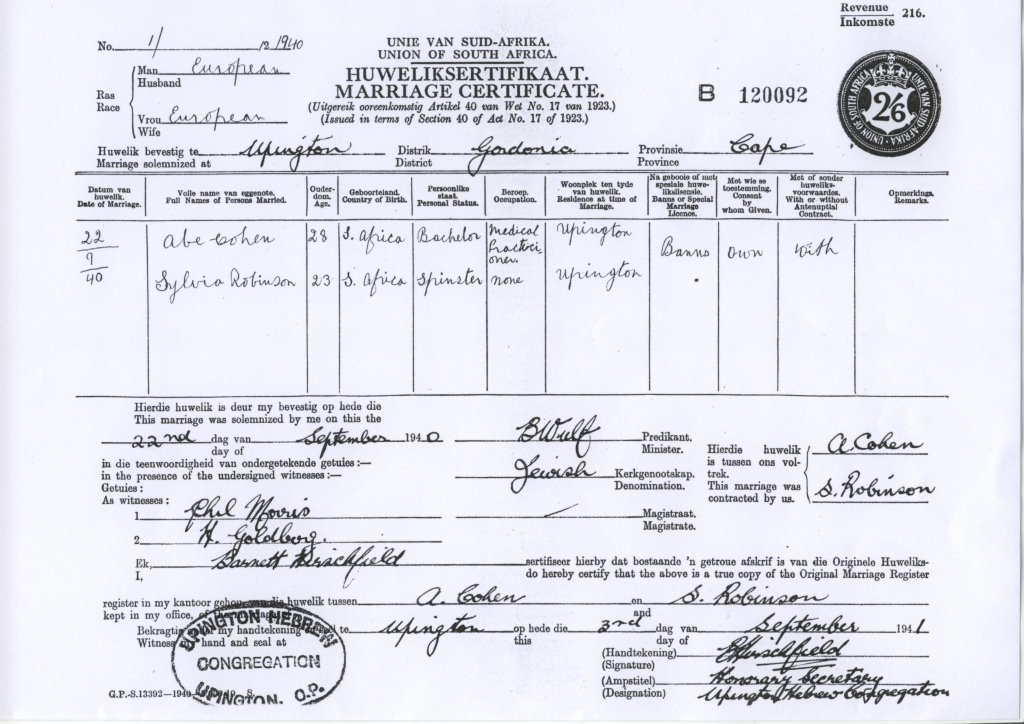 Revenue
Inkomste 216.
No. 1/ /12 1940
UNIE VAN SUID-AFRIKA.
UNION OF SOUTH AFRICA.
HUWELIKSERTIFIKAAT.
MARRIAGE CERTIFICATE.
(Uitgereik ooreenkomstig Artikel 40 van Wet No. 17 van 1923.)
(Issued in terms of Section 40 of Act No. 17 of 1923.)
B 120092
UNION OF SOUTH AFRICA · UNIE VAN SUID-AFRIKA
2/6
Ras
Race
Man European
Husband
Vrou European
Wife
Huwelik bevestig te Upington Distrik Gordonia Provinsie Cape
Marriage solemnized at District Province
Datum van huwelik. Date of Marriage.
Volle name van eggenote. Full Names of Persons Married.
Ouderdom. Age.
Geboorteland. Country of Birth.
Persoonlike staat. Personal Status.
Beroep. Occupation.
Woonplek ten tyde van huwelik. Residence at time of Marriage.
Na gebooie of met spesiale huwelikslisensie. Banns or Special Marriage Licence.
Met wie se toestemming. Consent by whom Given.
Met of sonder huweliksvoorwaardes. With or without Antenuptial Contract.
Opmerkings. Remarks.
22/9/40 Abe Cohen 28 S. Africa Bachelor Medical Practitioner Upington Banns own with
Sylvia Robinson 23 S. Africa Spinster none Upington
Hierdie huwelik is deur my bevestig op hede die
This marriage was solemnized by me on this the
22nd dag van September 1940
day of
BWulf Predikant.
Minister.
in die teenwoordigheid van ondergetekende getuies:—
in the presence of the undersigned witnesses:—
Jewish Kerkgenootskap.
Denomination.
Hierdie huwelik is tussen ons voltrek.
This marriage was contracted by us.
A Cohen
S. Robinson
Getuies:
As witnesses:
1. Phil Morris
Magistraat.
Magistrate.
2. H. Goldberg.
Ek, Barnett Hirschfield sertifiseer hierby dat bostaande 'n getroue afskrif is van die Originele Huweliks-
I, do hereby certify that the above is a true copy of the Original Marriage Register
register in my kantoor gehou, van die huwelik tussen A. Cohen en S. Robinson
kept in my office, of the and
Bekragtig my handtekening te Upington op hede die 3rd dag van September 1941
Witness my hand and seal at this day of
UPINGTON HEBREW
CONGREGATION
UPINGTON. C.P.
(Handtekening) BHirschfield
(Signature)
(Ampstitel) Honorary Secretary
(Designation) Upington Hebrew Congregation
G.P.-S.13392—1940
S.